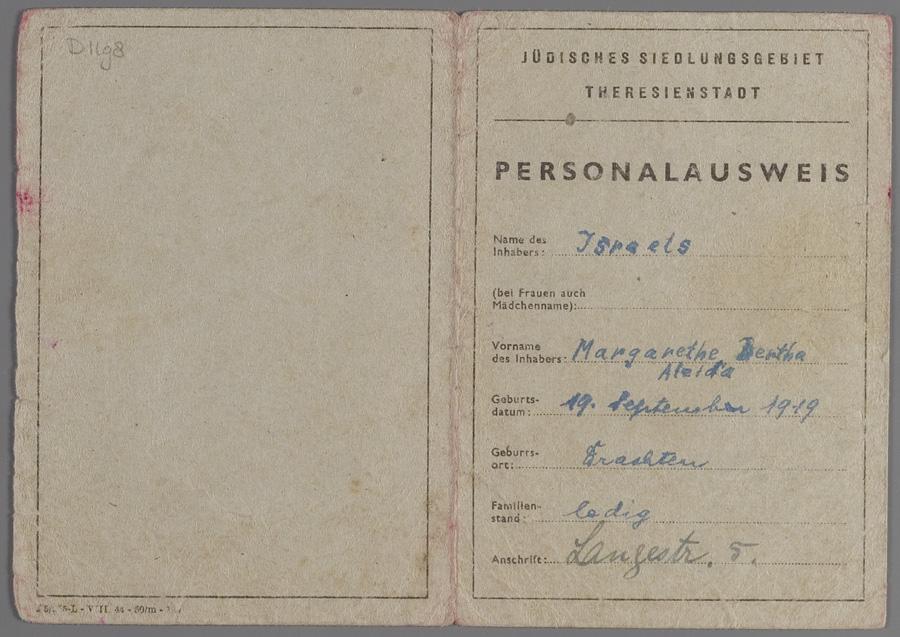 D11g8
JÜDISCHES SIEDLUNGSGEBIET
THERESIENSTADT
PERSONALAUSWEIS
Name des
Inhabers: Israels
(bei Frauen auch
Mädchenname):
Vorname
des Inhabers: Margarethe Bertha
Aleida
Geburts-
datum: 19. September 1919
Geburts-
ort:
Familien-
stand: ledig
Anschrift: Langestr. 5.